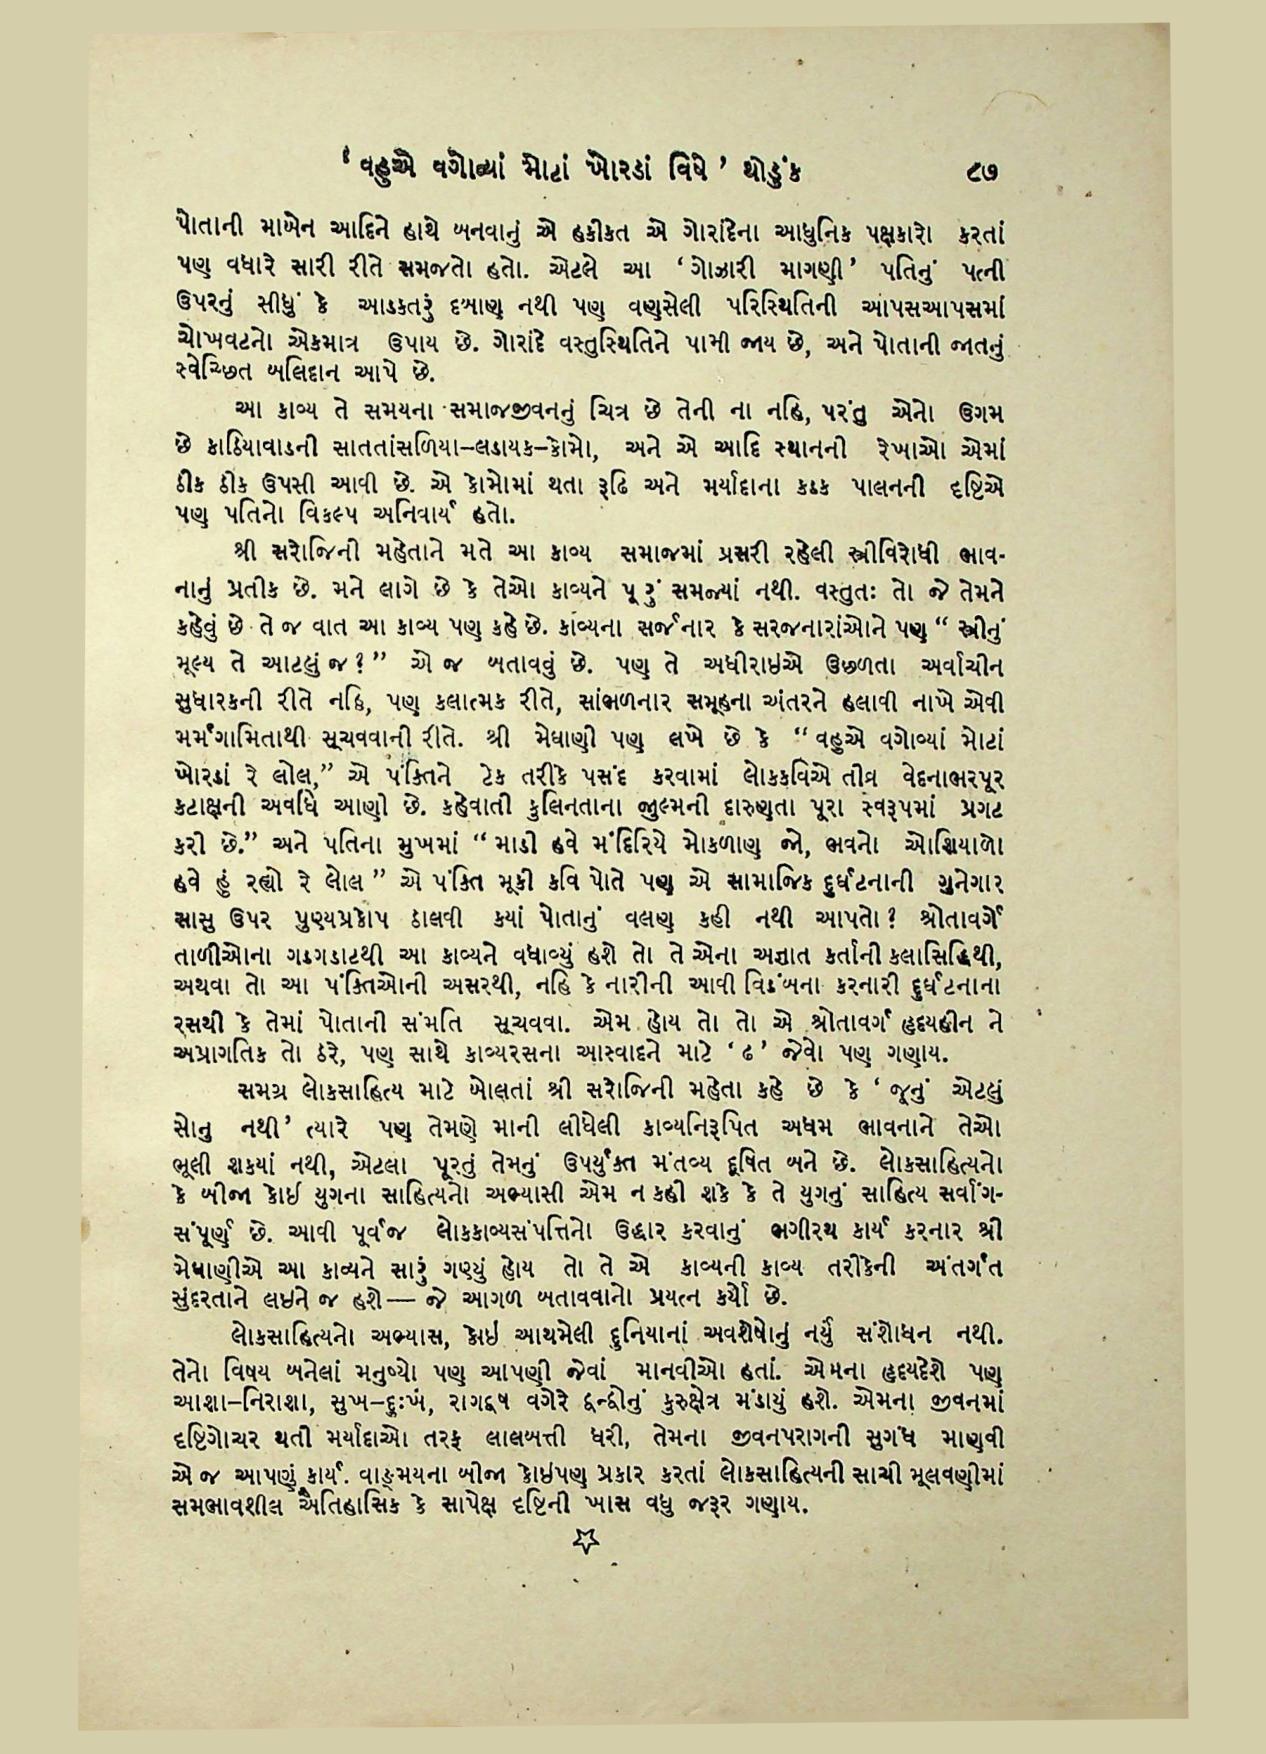 ‘વહુએ વગોવ્યાં મોટાં ખોરડાં વિષે’ થોડુંક ૮૭
પોતાની માબેન આદિને હાથે બનવાનું એ હકીકત એ ગોરાંદેના આધુનિક પક્ષકારો કરતાં
પણ વધારે સારી રીતે સમજતો હતો. એટલે આ ‘ગોઝારી માગણી’ પતિનું પત્ની
ઉપરનું સીધું કે આડકતરું દબાણ નથી પણ વણસેલી પરિસ્થિતિની આપસઆપસમાં
ચોખવટનો એકમાત્ર ઉપાય છે. ગોરાંદે વસ્તુસ્થિતિને પામી જાય છે, અને પોતાની જાતનું
સ્વેચ્છિત બલિદાન આપે છે.
આ કાવ્ય તે સમયના સમાજજીવનનું ચિત્ર છે તેની ના નહિ, પરંતુ એનો ઉગમ
છે કાઠિયાવાડની સાતતાંસળિયા–લડાયક–કોમો, અને એ આદિ સ્થાનની રેખાઓ એમાં
ઠીક ઠીક ઉપસી આવી છે. એ કોમોમાં થતા રૂઢિ અને મર્યાદાના કડક પાલનની દૃષ્ટિએ
પણ પતિનો વિકલ્પ અનિવાર્ય હતો.
શ્રી સરોજિની મહેતાને મતે આ કાવ્ય સમાજમાં પ્રસરી રહેલી સ્ત્રીવિરોધી ભાવ-
નાનું પ્રતીક છે. મને લાગે છે કે તેઓ કાવ્યને પૂરું સમજ્યાં નથી. વસ્તુતઃ તો જે તેમને
કહેવું છે તે જ વાત આ કાવ્ય પણ કહે છે. કાવ્યના સર્જનાર કે સરજનારાંઓને પણ “સ્ત્રીનું
મૂલ્ય તે આટલું જ?” એ જ બતાવવું છે. પણ તે અધીરાઇએ ઉછળતા અર્વાચીન
સુધારકની રીતે નહિ, પણ કલાત્મક રીતે, સાંભળનાર સમૂહના અંતરને હલાવી નાખે એવી
મર્મગામિતાથી સૂચવવાની રીતે. શ્રી મેઘાણી પણ લખે છે કે “વહુએ વગોવ્યાં મોટાં
ખોરડાં રે લોલ,” એ પંક્તિને ટેક તરીકે પસંદ કરવામાં લોકકવિએ તીવ્ર વેદનાભરપૂર
કટાક્ષની અવધિ આણી છે. કહેવાતી કુલિનતાના જુલ્મની દારુણતા પૂરા સ્વરૂપમાં પ્રગટ
કરી છે.” અને પતિના મુખમાં “માડી હવે મંદિરિયે મોકળાણ જો, ભવનો ઓશિયાળો
હવે હું રહ્યો રે લોલ” એ પંક્તિ મૂકી કવિ પોતે પણ એ સામાજિક દુર્ઘટનાની ગુનેગાર
સાસુ ઉપર પુણ્યપ્રકોપ ઠાલવી કયાં પોતાનું વલણ કહી નથી આપતો? શ્રોતાવર્ગે
તાળીઓના ગડગડાટથી આ કાવ્યને વધાવ્યું હશે તો તે એના અજ્ઞાત કર્તાની કલાસિદ્ધિથી,
અથવા તો આ પંક્તિઓની અસરથી, નહિ કે નારીની આવી વિડંબના કરનારી દુર્ઘટનાના
રસથી કે તેમાં પોતાની સંમતિ સૂચવવા. એમ હોય તો તો એ શ્રોતાવર્ગ હૃદયહીન ને
અપ્રાગતિક તો ઠરે, પણ સાથે કાવ્યરસના આસ્વાદને માટે ‘ઢ’ જેવો પણ ગણાય.
સમગ્ર લોકસાહિત્ય માટે બોલતાં શ્રી સરોજિની મહેતા કહે છે કે ‘જૂનું એટલું
સોનુ નથી’ ત્યારે પણ તેમણે માની લીધેલી કાવ્યનિરૂપિત અધમ ભાવનાને તેઓ
ભૂલી શકયાં નથી, એટલા પૂરતું તેમનું ઉપર્યુક્ત મંતવ્ય દૂષિત બને છે. લોકસાહિત્યનો
કે બીજા કોઇ યુગના સાહિત્યનો અભ્યાસી એમ ન કહી શકે કે તે યુગનું સાહિત્ય સર્વાંગ-
સંપૂર્ણ છે. આવી પૂર્વજ લોકકાવ્યસંપત્તિનો ઉદ્ધાર કરવાનું ભગીરથ કાર્ય કરનાર શ્રી
મેઘાણીએ આ કાવ્યને સારું ગણ્યું હોય તો તે એ કાવ્યની કાવ્ય તરીકેની અંતર્ગત
સુંદરતાને લઇને જ હશે— જે આગળ બતાવવાનો પ્રયત્ન કર્યો છે.
લોકસાહિત્યનો અભ્યાસ, કોઇ આથમેલી દુનિયાનાં અવશેષોનું નર્યું સંશોધન નથી.
તેનો વિષય બનેલાં મનુષ્યો પણ આપણી જેવાં માનવીઓ હતાં. એમના હૃદયદેશે પણ
આશા–નિરાશા, સુખ–દુઃખ, રાગદ્વષ વગેરે દ્વન્દ્વોનું કુરુક્ષેત્ર મંડાયું હશે. એમના જીવનમાં
દૃષ્ટિગોચર થતી મર્યાદાઓ તરફ લાલબત્તી ધરી, તેમના જીવનપરાગની સુગંધ માણવી
એ જ આપણું કાર્ય. વાઙ્મયના બીજા કોઇપણ પ્રકાર કરતાં લોકસાહિત્યની સાચી મૂલવણીમાં
સમભાવશીલ ઐતિહાસિક કે સાપેક્ષ દૃષ્ટિની ખાસ વધુ જરૂર ગણાય.